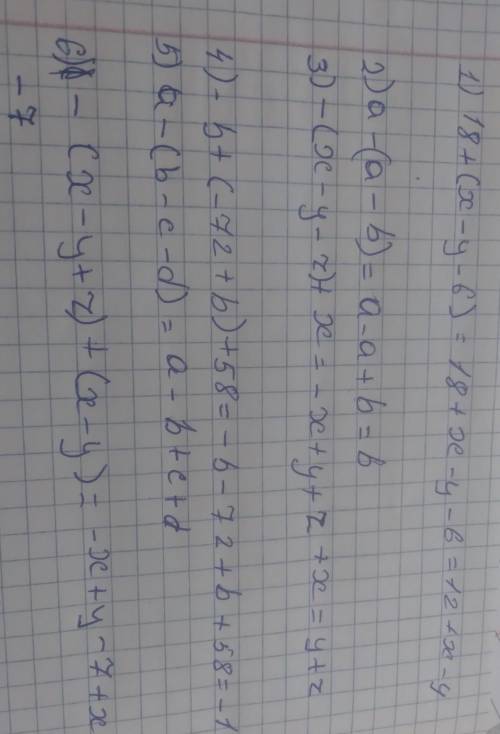 1) 18+(x-y-6)=18+x-y-6=12+x-y
2) a-(a-b)=a-a+b=b
3) -(x-y-z)+x=-x+y+z+x=y+z
4) -b+(-72+b)+58=-b-72+b+58=-1
5) a-(b-c-d)=a-b+c+d
6) -(x-y+z)+(x-y)=-x+y-7+x
-7